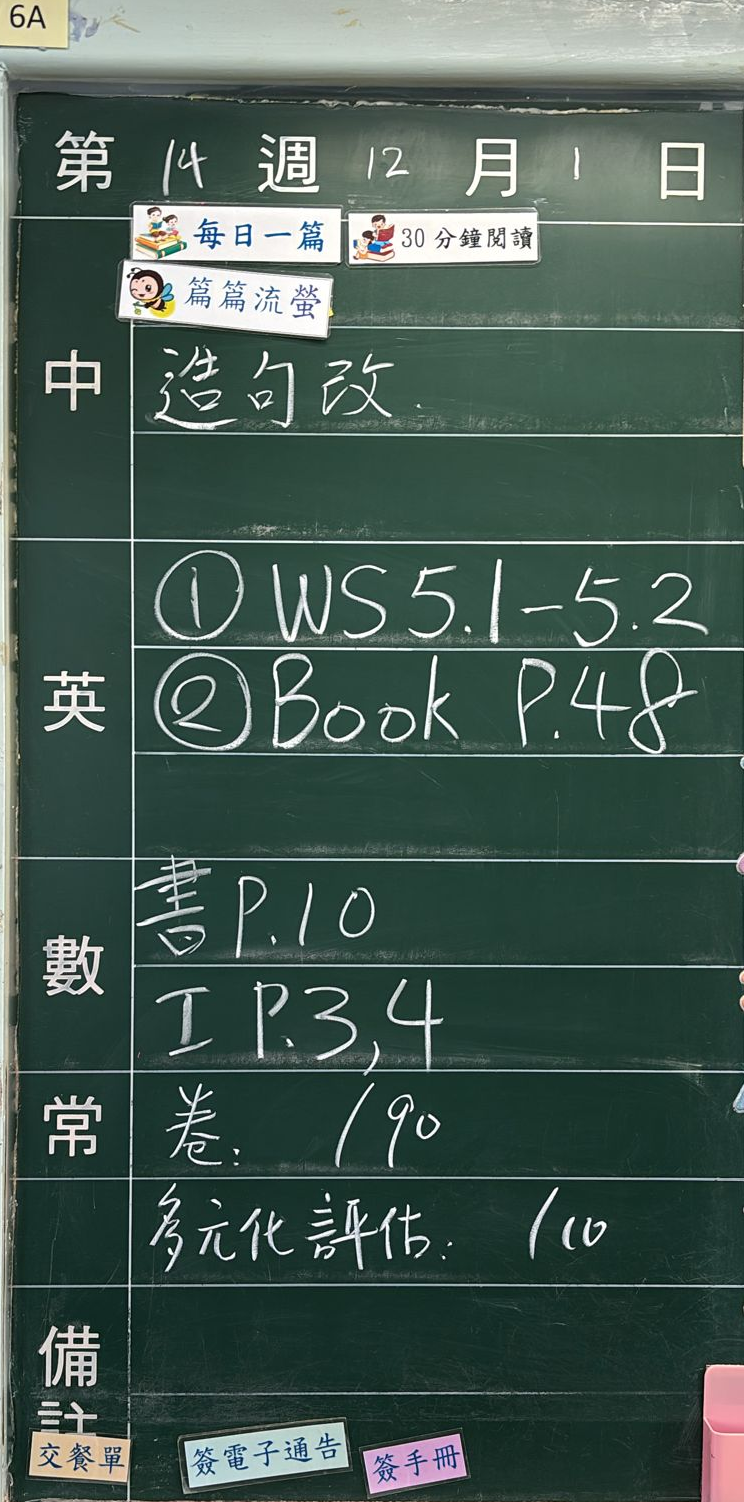 6A
第 14 週 12 月 1 日
每日一篇 30分鐘閱讀
篇篇流螢
中 造句改.
英 ① WS 5.1-5.2
② Book P.48
數 書 P.10
工 P.3,4
常 卷: /90
多元化評估: /10
備註
交餐單 簽電子通告 簽手冊